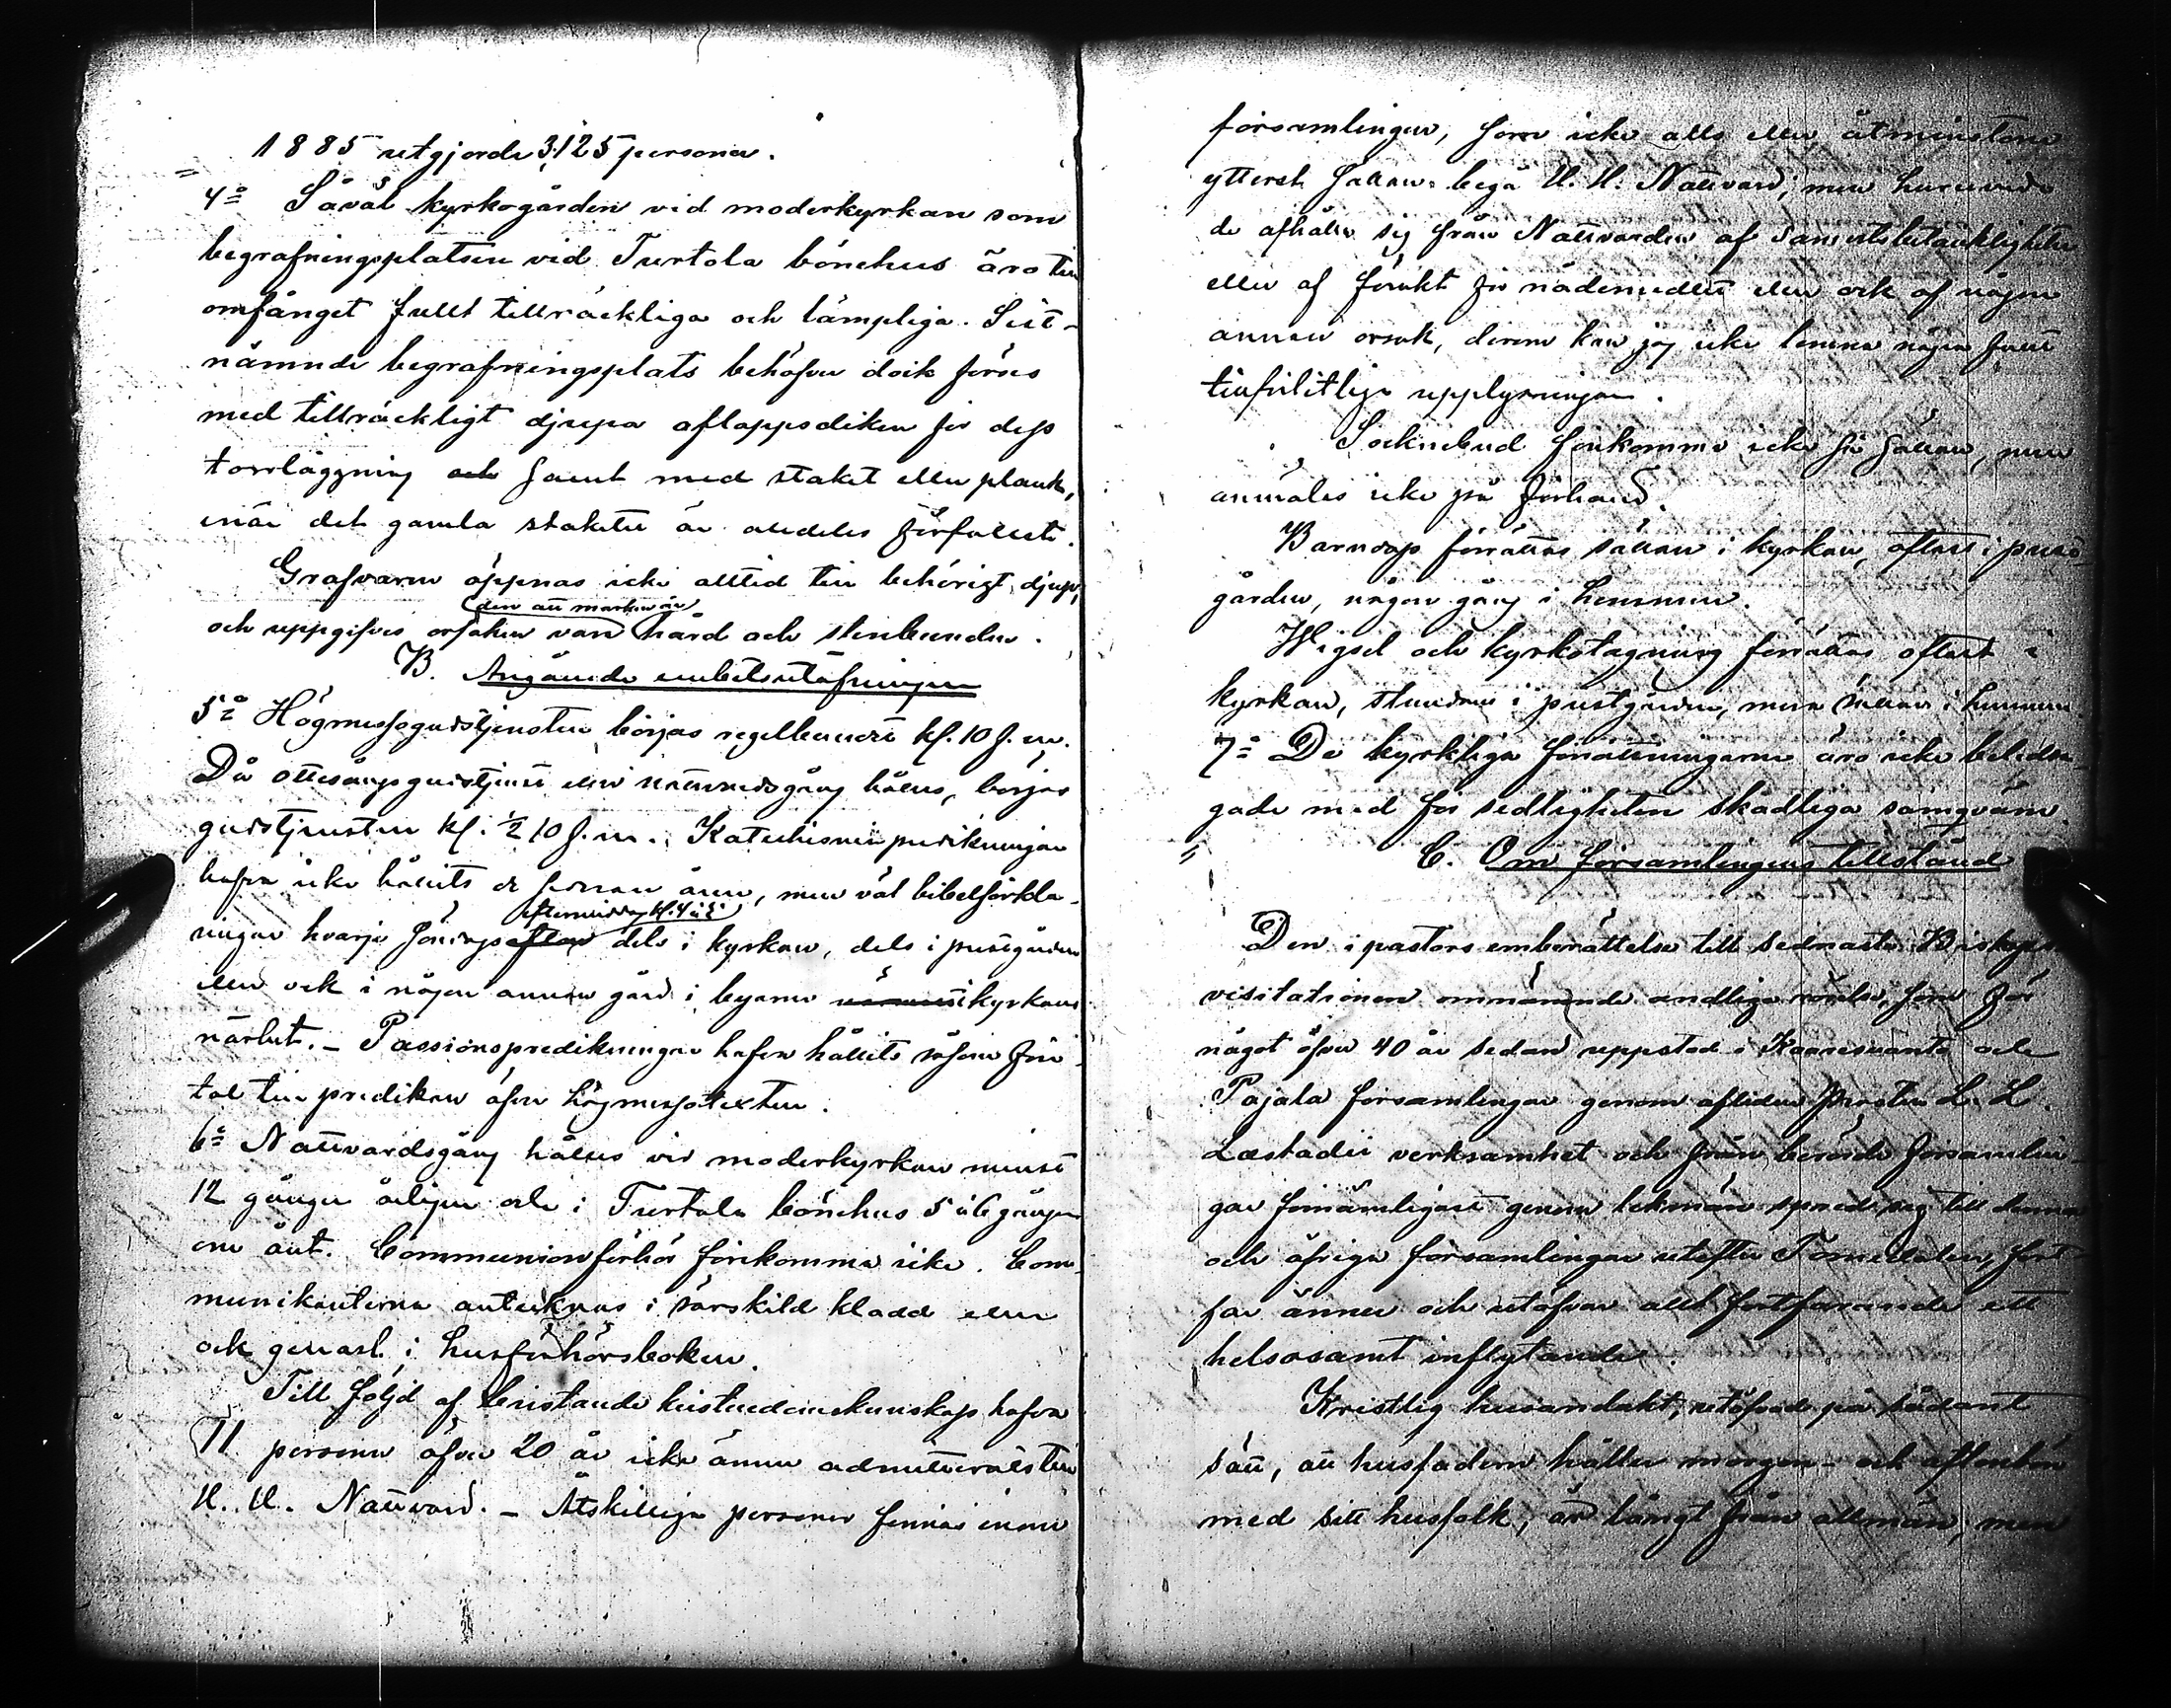 1885 utgjorde 3,125 personer.
4:o Såväl kyrkogården vid moderkyrkan som
begrafningsplatsen vid Turtola bönehus äro till
omfånget fullt tillräckliga och lämpliga. Sist-
nämnde begrafningsplats behöfver dock förses
med tillräckligt djupa aflappsdiken för dess
torrläggning och samt med staket eller plank,
enär det gamla staketet är alldeles förfallet.
Grafvarne öppnas icke alltid till behörigt djup,
den att marken är
och uppgifves orsaken vara hård och stenbunden.
B. Angående embetsutöfningen
5:o Högmessogudstjensten börjas regelbundet kl. 10 f.m.
Då ottesångsgudstjenst eller nattvardsgång hålles, börjas
gudstjensten kl. ½ 10 f.m. Katechismipredikningar
hafva icke hållits de sednare åren, men väl bibelförkla-
eftermiddag kl. 4 à 5
ringar hvarje söndags afton dels i kyrkan, dels i prestgården
eller ock i någon annan gård i byarne närmast kyrkans
närhet. – Passionspredikningar hafva hållits såsom för-
tal till predikan öfver högmessotexten.
6:o Nattvardsgång hålles vid moderkyrkan minst
12 gånger årligen och i Turtola bönehus 5 à 6 gånger
om året. Communionförhör förekomma icke. Com-
munikanterna antecknas i särskild kladd eller
ock genast i husförhörsboken.
Till följd af bristande kristendomskunskap hafva
11 personer öfver 20 år icke ännu admitterats till
H. H. Nattvard. – Åtskilliga personer finnas inom
församlingen, som icke alls eller åtminstone
ytterst sällan begå H. H. Nattvard; men huruvida
de afhålla sig från Nattvarden af samvetsbetänkligheter
eller af förakt för nådemedlet eller ock af någon
annan orsak, derom kan jag icke lemna några fullt
tillförlitliga upplysningar.
Sockenbud förekomma icke så sällan, men
anmäles icke på förhand.
Barndop förrättas sällan i kyrkan, oftast i prest-
gården, någon gång i hemmen.
Wigsel och kyrkotagning förrättas oftast i
kyrkan, stundom i prestgården, mera sällan i hemmen.
7:o De kyrkliga förrättningarne äro icke beledsa-
gade med för sedligheten skadliga samqväm.
C. Om församlingens tillstånd
Den i pastors emberättelse till sednaste Biskops
visitationen omnämnde andliga rörelse, som för
något öfver 40 år sedan uppstod i Karesuanto och
Pajala församlingar genom aflidne Prosten L. L.
Læstadii verksamhet och från berörde församlin-
gar förnämligast genom lekmän spred sig till denna
och öfriga församlingar utefter Torneådalen, fort-
far ännu och utöfvar allt fortfarande ett
helsosamt inflytande.
Kristlig husandakt, utöfvad på sådant
sätt, att husfadern håller morgon- och aftonbön
med sitt husfolk, är långt från allmän, men